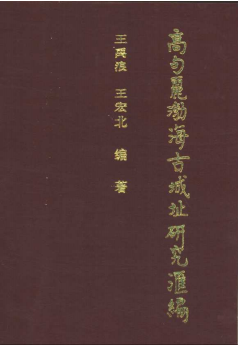 高句麗渤海古城址研究滙編
王禹浪 王宏北 编著